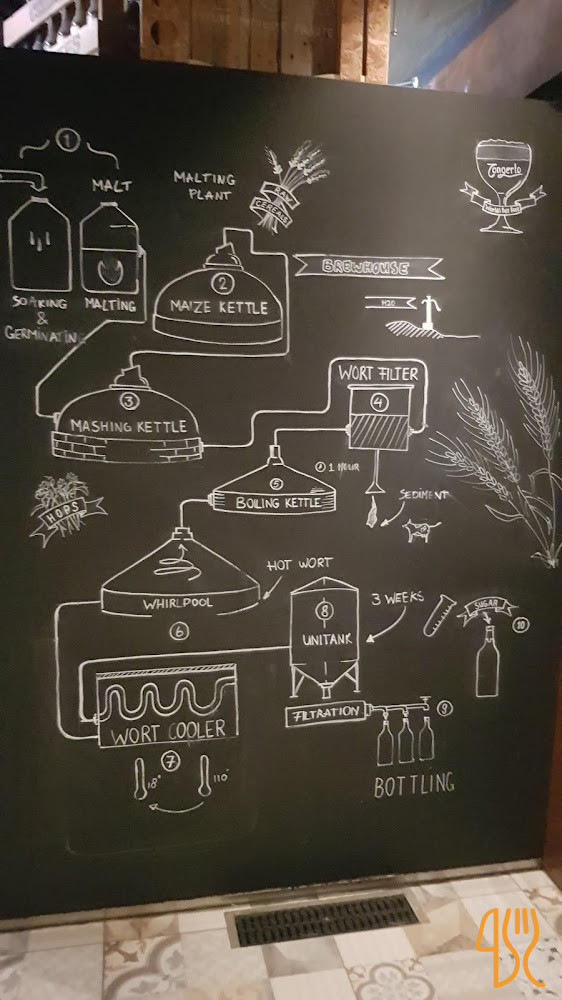 1
MALT
MALTING
PLANT
RAW
CEREALS
Tongerlo
SOAKING
&
GERMINATING
MALTING
2
MAIZE KETTLE
BREWHOUSE
H2O
3
MASHING KETTLE
WORT FILTER
4
1 HOUR
5
BOILING KETTLE
SEDIMENT
HOPS
HOT WORT
WHIRLPOOL
6
8
UNITANK
3 WEEKS
SUGAR
10
FILTRATION
9
BOTTLING
WORT COOLER
7
18°
110°